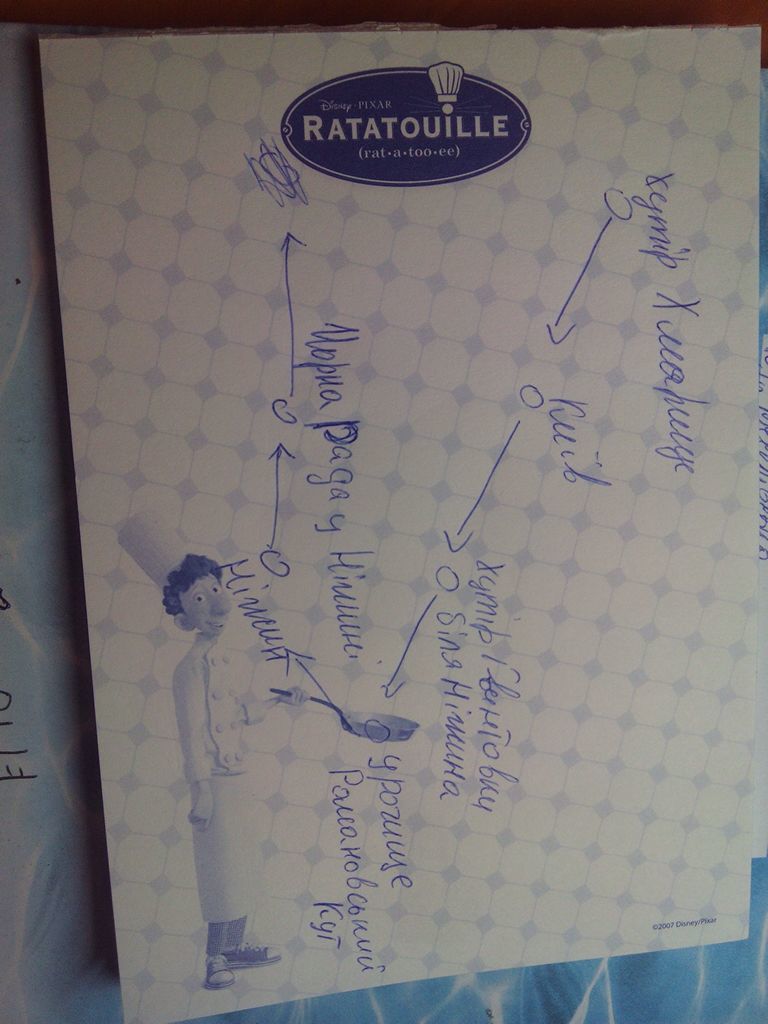 Disney · PIXAR
RATATOUILLE
(rat·a·too·ee)
хутір Хмарище
Київ
хутір Гвинтовки
біля Ніжина
урочище
Романовський
Кут
Ніжин
Чорна Рада у Ніжині
©2007 Disney/Pixar